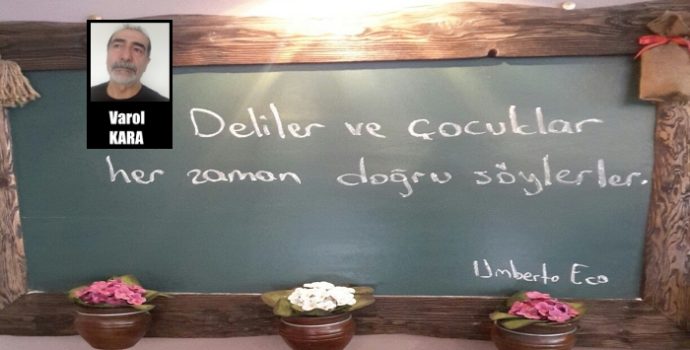 Varol
KARA
Deliler ve çocuklar
her zaman doğru söylerler.
Umberto Eco